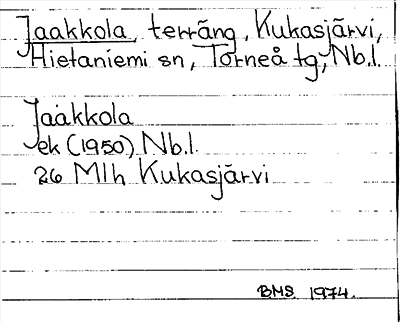 Jaakkola, terräng, Kukasjärvi,
Hietaniemi sn, Torneå tg, Nb.l.
Jaakkola
ek (1950) Nb.l.
26 Mlh Kukasjärvi
BMS 1974.